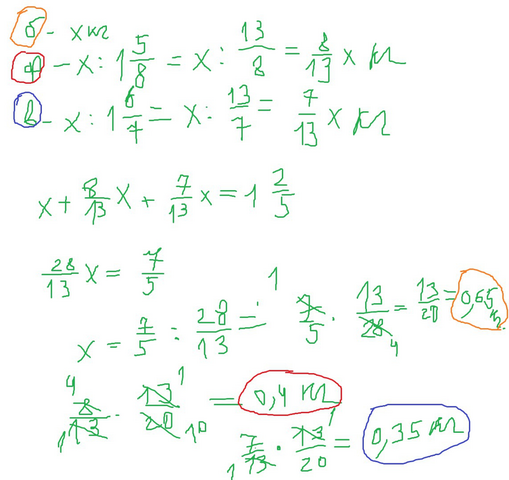 б - x кг
ф - x : 1 5/8 = x : 13/8 = 8/13 x кг
в - x : 1 6/7 = x : 13/7 = 7/13 x кг
x + 8/13 x + 7/13 x = 1 2/5
28/13 x = 7/5
x = 7/5 : 28/13 = 7/5 · 13/28 = 13/20 = 0,65 кг
1 4
8/13 · 13/20 = 0,4 кг
4 1 1 10
7/13 · 13/20 = 0,35 кг
1 1